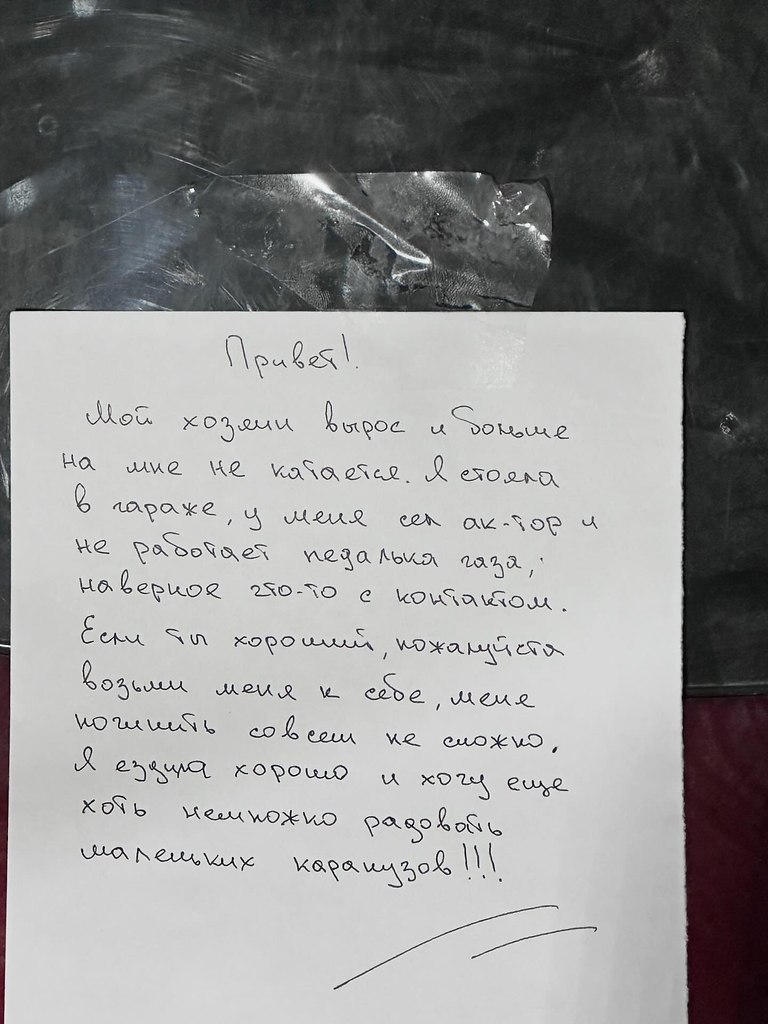 Привет!
Мой хозяин вырос и больше
на мне не катается. Я стояла
в гараже, у меня сел ак-тор и
не работает педалька газа,
наверное что-то с контактом.
Если ты хороший, пожалуйста
возьми меня к себе, меня
починить совсем не сложно.
Я ездила хорошо и хочу еще
хоть немножко радовать
маленьких карапузов!!!